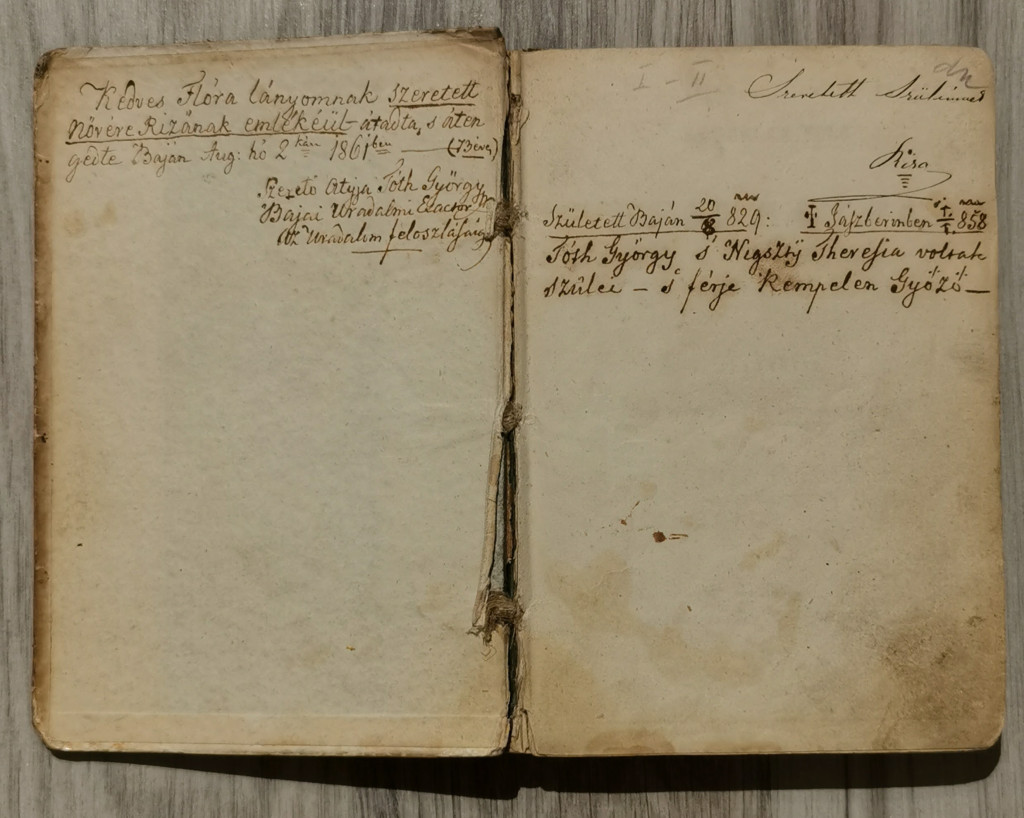 Kedves Flóra lányomnak szeretett
növére Rizának emlékéül átadta, s áten
gedte Baján Aug: hó 2 kán 1861 ben — (73 éves)
Szerető Atyja Tóth György
Bajai Uradalmi
az Uradalom felosztásáig
I - II
Szeretett Szüleimnek
Riza
Született Baján 20/8 829: † Jászberénben 858
Tóth György s Nigsztÿ Theresia voltak
szülei – s férje Kempelen Győző —